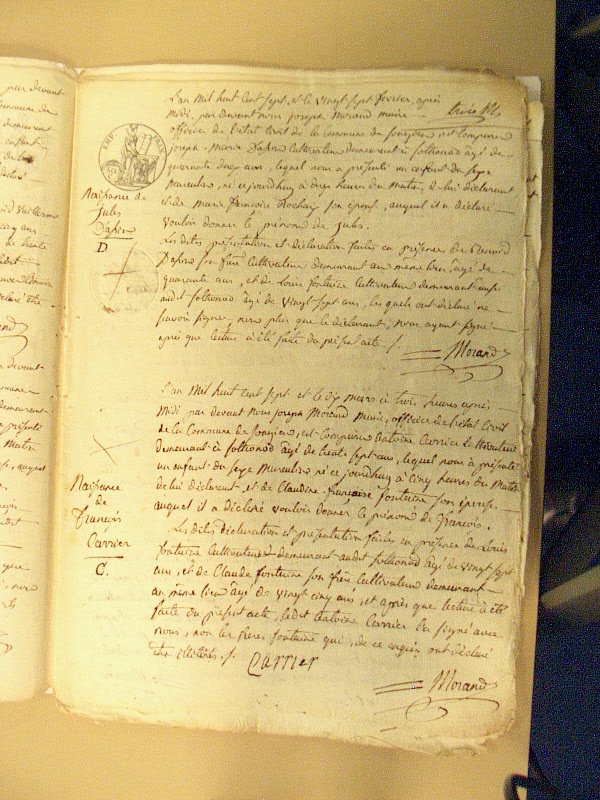 L'an Mil huit Cent Sept, et le vingt Sept février, après
Midi, par devant nous joseph Morand maire
officier de l'état Civil de la commune de Songieu, est comparu
joseph Marie Dapin Cultivateur demeurant à Sothonod âgé de
quarante deux ans, lequel nous a présenté un enfant du Sexe
Masculin, né ce jourdhuy à onze heures du Matin, de lui déclarant
et de Marie françoise Rochaix Son épouse, auquel il a déclaré
vouloir donner le prénom de jules.
Les dites présentation et déclaration faites en présence de
Dapin Son frère Cultivateur demeurant au même lieu âgé de
quarante ans, et de Louis fontaine Cultivateur demeurant aussi
audit Sothonod âgé de vingt Sept ans, les quels ont déclaré ne
Savoir Signer non plus que le déclarant, nous ayant Signé
après que lecture a été faite du présent acte ./.
Morand
Naissance de
Jules
Dapin
D
L'an Mil huit Cent Sept et le dix mars à trois heures après
Midi par devant Nous joseph Morand Maire, officier de l'état Civil
de la Commune de Songieu, est Comparu Antoine Carrier Cultivateur
demeurant à Sothonod âgé de trente Sept ans, lequel nous a présenté
un enfant du Sexe Masculin né ce jourdhuy à Cinq heures du Matin
de lui déclarant, et de Claudine françoise fontaine Son épouse.
auquel il a déclaré vouloir donner le prénom de François.
Les dites déclaration et présentation faites en présence de Louis
fontaine Cultivateur demeurant audit Sothonod âgé de vingt Sept
ans, et de Claude fontaine Son frère Cultivateur demeurant
au même lieu âgé de vingt cinq ans, et après que lecture a été
faite du présent acte, ledit Antoine Carrier l'a Signé avec
nous, non les frères fontaine qui, de ce enquis ont déclaré
être illitérés ./. Carrier
Morand
Naissance
de
François
Carrier
C.